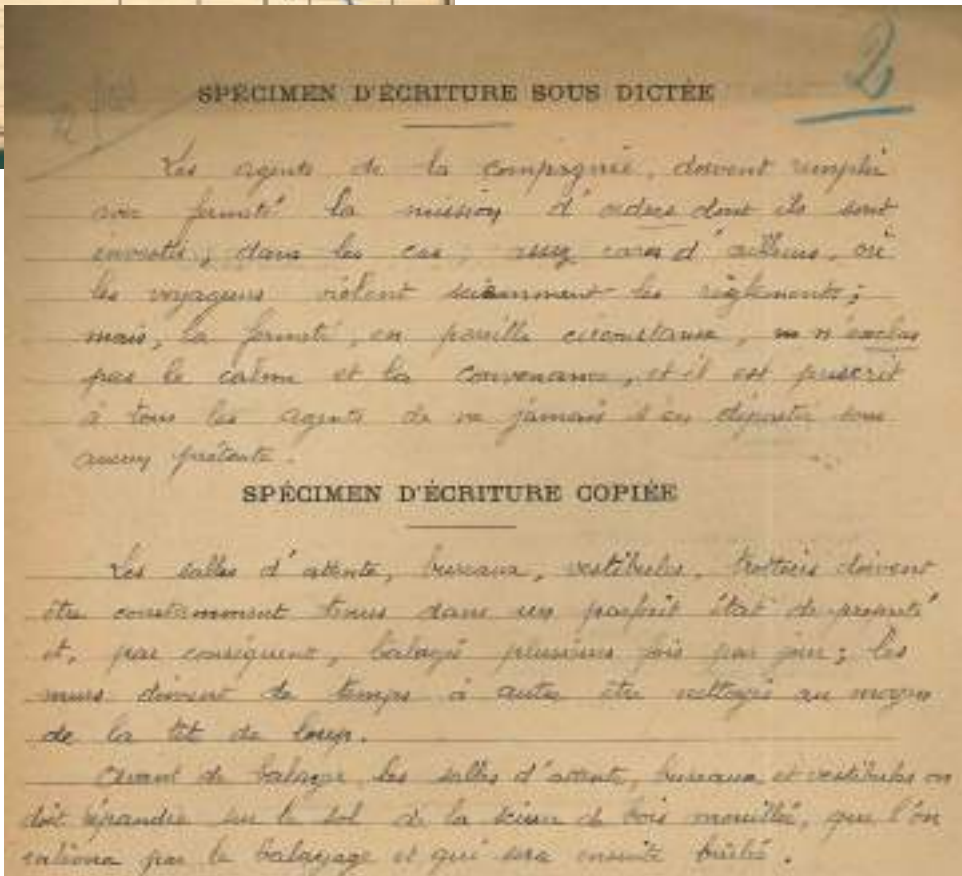 2
SPÉCIMEN D'ÉCRITURE SOUS DICTÉE
Les agents de la compagnie, doivent remplir
avec fermeté la mission d'ordres dont ils sont
investis, dans les cas, assez rares d'ailleurs, où
les voyageurs violent sciemment les règlements;
mais, la fermeté, en pareille circonstance, n'exclus
pas le calme et la convenance, et il est prescrit
à tous les agents de ne jamais s'en départir sous
aucun prétexte.
SPÉCIMEN D'ÉCRITURE COPIÉE
Les salles d'attente, bureaux, vestibules, trottoirs doivent
être constamment tenus dans un parfait état de propreté
et, par conséquent, balayés plusieurs fois par jour; les
murs doivent de temps à autre être nettoyés au moyen
de la têt de loup.
Avant de balayer les salles d'attente, bureaux et vestibules on
doit répandre sur le sol de la sciure de bois mouillée, que l'on
enlèvera par le balayage et qui sera ensuite brûlée.